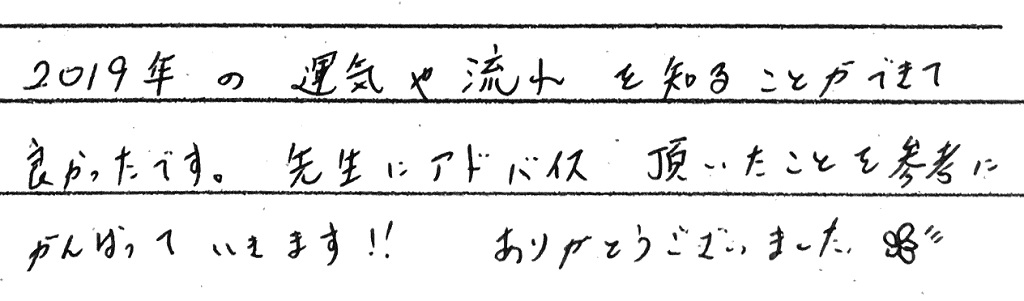 2019年の運気や流れを知ることができて
良かったです。先生にアドバイス頂いたことを参考に
がんばっていきます!! ありがとうございました